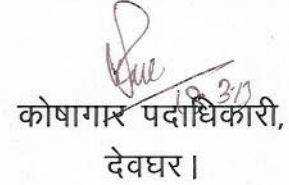 कोषागार पदाधिकारी,
देवघर।